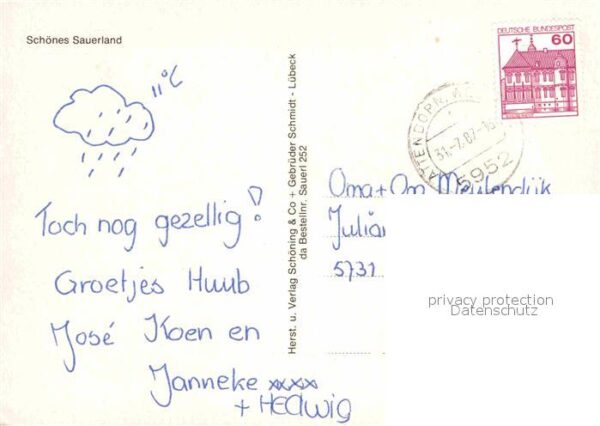 Schönes Sauerland
11°C
Toch nog gezellig!
Groetjes Huub
José Koen en
Janneke xxxx
+ HEdwig
Herst. u. Verlag Schöning & Co + Gebrüder Schmidt - Lübeck
da Bestellnr. Sauerl 252
DEUTSCHE BUNDESPOST
60
ATTENDORN
31.-7.87-16
5952
Oma + Opa Meulendijk
5731
privacy protection
Datenschutz